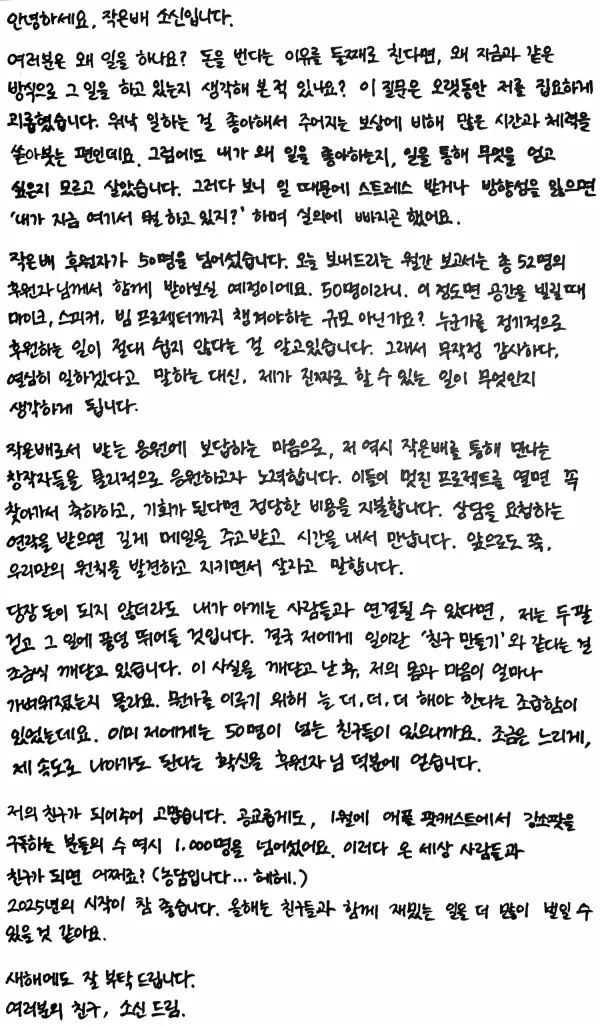 안녕하세요, 작은배 소신입니다.
여러분은 왜 일을 하나요? 돈을 번다는 이유를 둘째로 친다면, 왜 지금과 같은
방식으로 그 일을 하고 있는지 생각해 본 적 있나요? 이 질문은 오랫동안 저를 집요하게
괴롭혔습니다. 워낙 일하는 걸 좋아해서 주어지는 보상에 비해 많은 시간과 체력을
쏟아붓는 편인데요. 그럼에도 내가 왜 일을 좋아하는지, 일을 통해 무엇을 얻고
싶은지 모르고 살았습니다. 그러다 보니 일 때문에 스트레스 받거나 방향성을 잃으면
'내가 지금 여기서 뭘 하고 있지?' 하며 실의에 빠지곤 했어요.
작은배 후원자가 50명을 넘어섰습니다. 오늘 보내드리는 월간 보고서는 총 52명의
후원자님께서 함께 받아보실 예정이에요. 50명이라니. 이 정도면 공간을 빌릴 때
마이크, 스피커, 빔 프로젝터까지 챙겨야하는 규모 아닌가요? 누군가를 정기적으로
후원하는 일이 절대 쉽지 않다는 걸 알고있습니다. 그래서 무작정 감사하다,
열심히 일하겠다고 말하는 대신, 제가 진짜로 할 수 있는 일이 무엇인지
생각하게 됩니다.
작은배로서 받는 응원에 보답하는 마음으로, 저 역시 작은배를 통해 만나는
창작자들을 물리적으로 응원하고자 노력합니다. 이들이 멋진 프로젝트를 열면 꼭
찾아가서 축하하고, 기회가 된다면 정당한 비용을 지불합니다. 상담을 요청하는
연락을 받으면 길게 메일을 주고받고 시간을 내서 만납니다. 앞으로도 쭉,
우리만의 원칙을 발견하고 지키면서 살자고 말합니다.
당장 돈이 되지 않더라도 내가 아끼는 사람들과 연결될 수 있다면, 저는 두 팔
걷고 그 일에 풍덩 뛰어들 것입니다. 결국 저에게 일이란 '친구 만들기'와 같다는 걸
조금씩 깨닫고 있습니다. 이 사실을 깨닫고 난 후, 저의 몸과 마음이 얼마나
가벼워졌는지 몰라요. 뭔가를 이루기 위해 늘 더, 더, 더 해야 한다는 조급함이
있었는데요. 이미 저에게는 50명이 넘는 친구들이 있으니까요. 조금은 느리게,
제 속도로 나아가도 된다는 확신을 후원자님 덕분에 얻습니다.
저의 친구가 되어주어 고맙습니다. 공교롭게도, 1월에 애플 팟캐스트에서 강소팟을
구독하는 분들의 수 역시 1.000명을 넘어섰어요. 이러다 온 세상 사람들과
친구가 되면 어쩌죠? (농담입니다... 헤헤.)
2025년의 시작이 참 좋습니다. 올해는 친구들과 함께 재밌는 일을 더 많이 벌일 수
있을 것 같아요.
새해에도 잘 부탁드립니다.
여러분의 친구, 소신 드림.